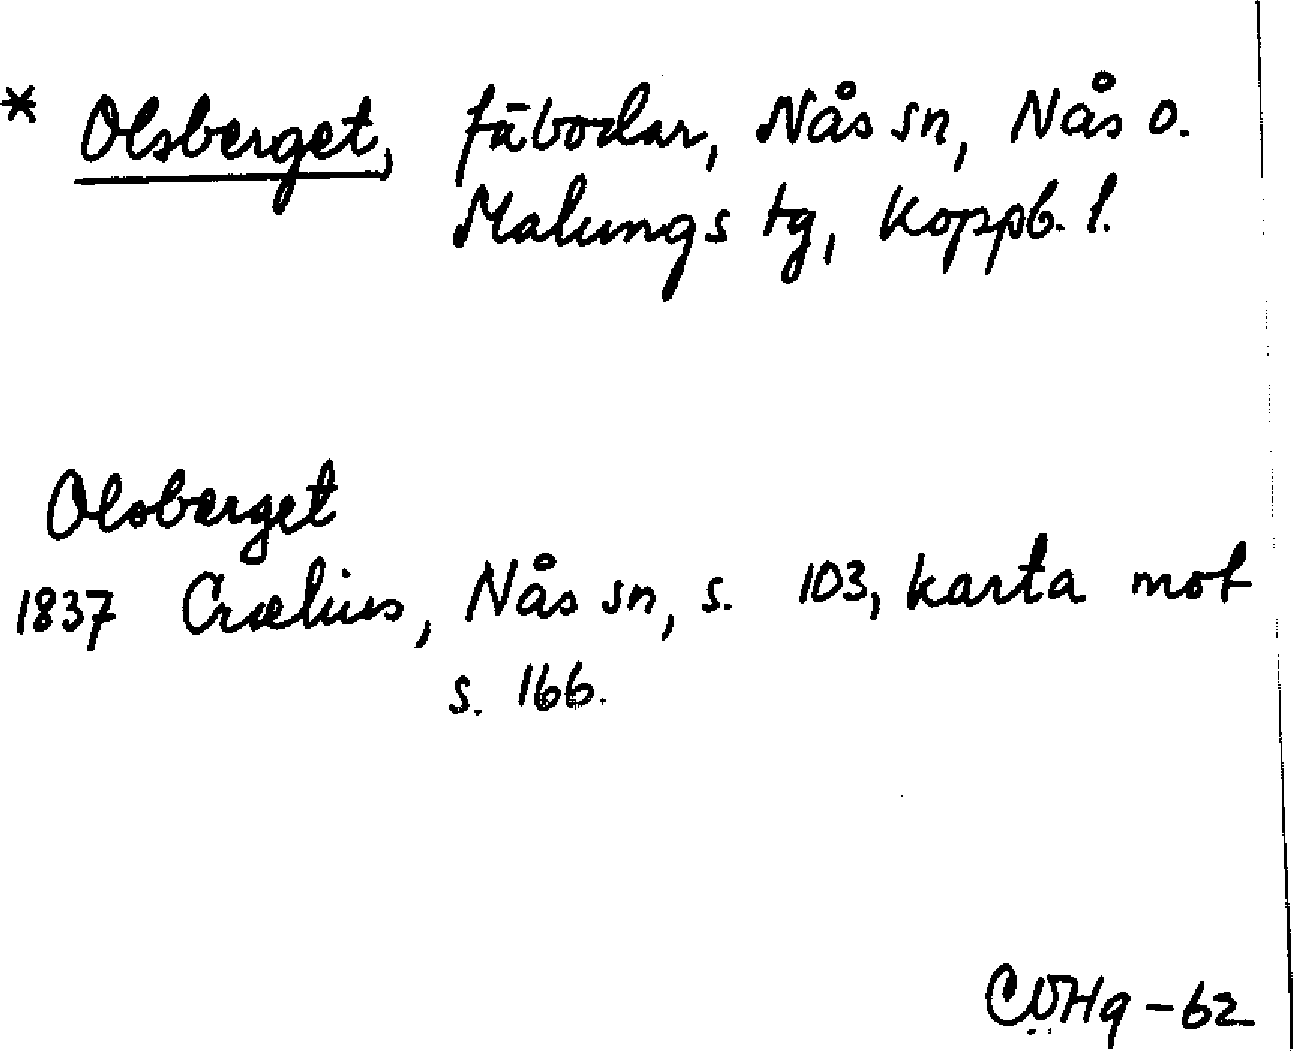 * Olsberget, fäbodar, Nås sn, Nås o.
Malungs tg, Koppb. l.
Olsberget
1837 Crælius, Nås sn, s. 103, karta mot
s. 166.